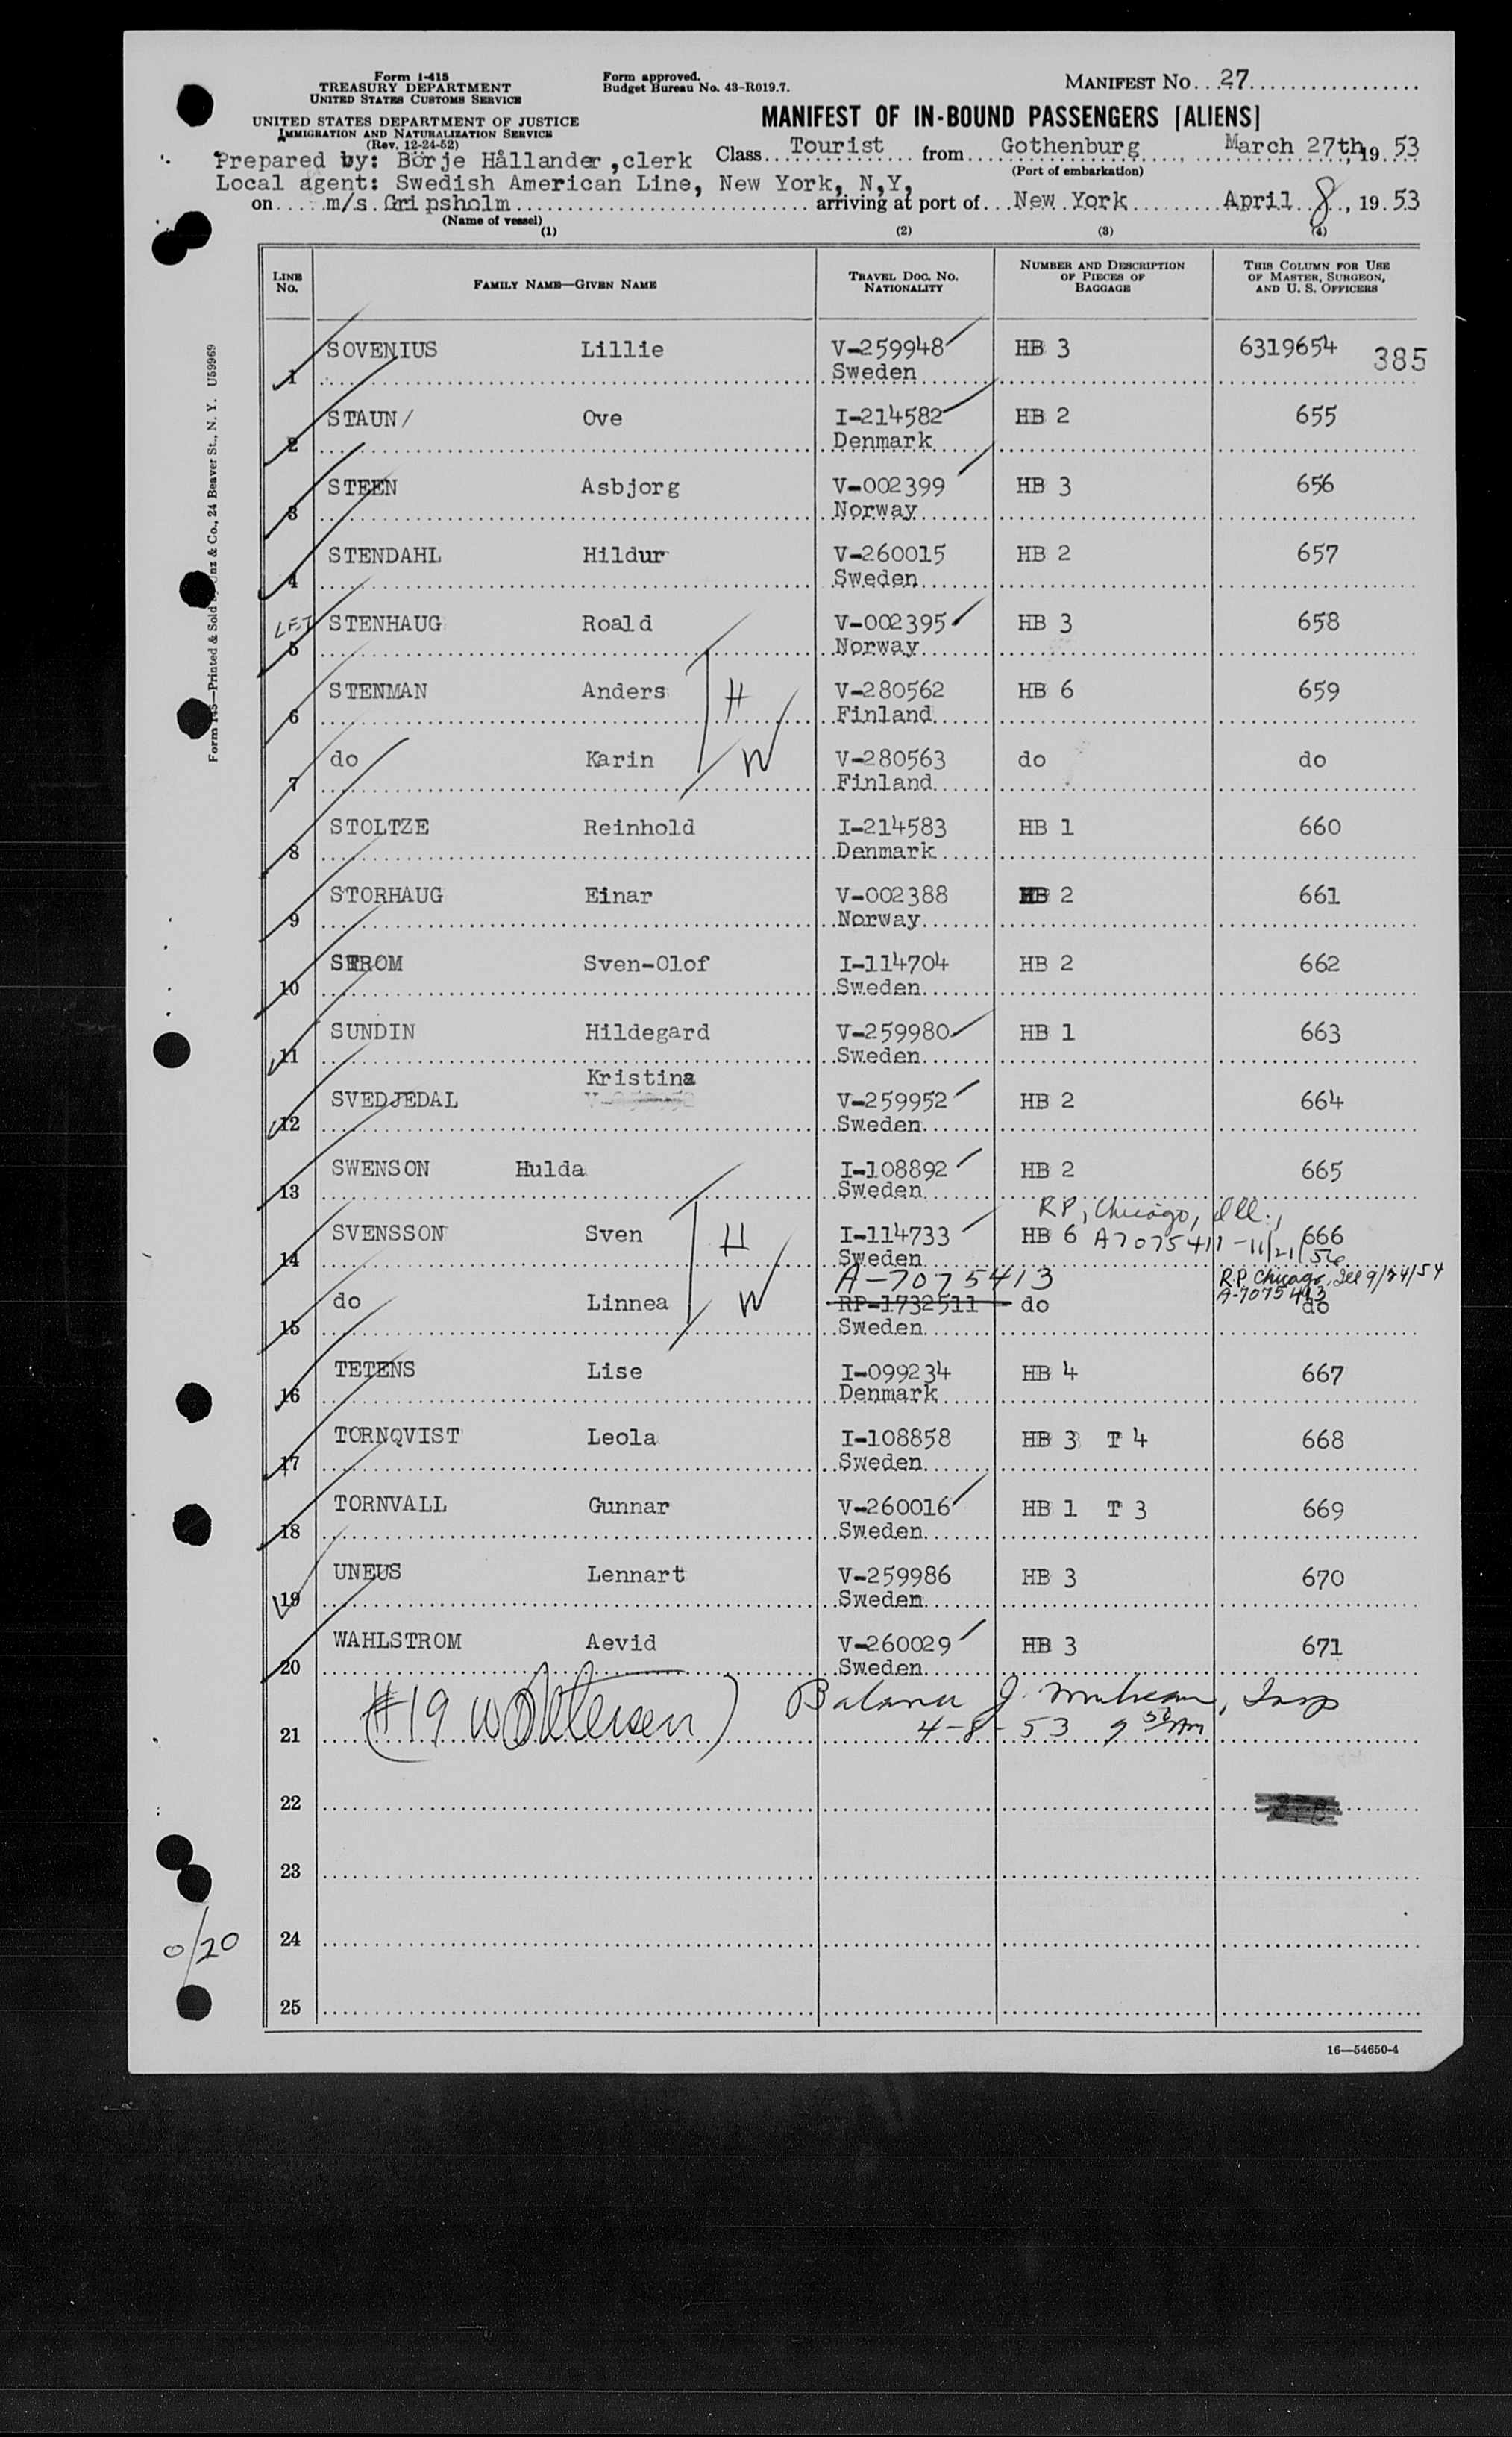 Form I-415
TREASURY DEPARTMENT
UNITED STATES CUSTOMS SERVICE
UNITED STATES DEPARTMENT OF JUSTICE
IMMIGRATION AND NATURALIZATION SERVICE
(Rev. 12-24-52)
Form approved.
Budget Bureau No. 43-R019.7.
MANIFEST NO. 27
MANIFEST OF IN-BOUND PASSENGERS [ALIENS]
Prepared by: Börje Hållander, clerk Class Tourist from Gothenburg, March 27th, 19 53
(Port of embarkation)
Local agent: Swedish American Line, New York, N,Y,
on m/s Gripsholm arriving at port of New York April 8, 19 53
(Name of vessel)
(1) (2) (3) (4)
LINE NO. FAMILY NAME—GIVEN NAME TRAVEL DOC. NO. NATIONALITY NUMBER AND DESCRIPTION OF PIECES OF BAGGAGE THIS COLUMN FOR USE OF MASTER, SURGEON, AND U. S. OFFICERS
SOVENIUS Lillie V-259948 HB 3 6319654 385
1 Sweden
STAUN/ Ove I-214582 HB 2 655
2 Denmark
STEEN Asbjorg V-002399 HB 3 656
3 Norway
STENDAHL Hildur V-260015 HB 2 657
4 Sweden
LET STENHAUG Roald V-002395 HB 3 658
5 Norway
STENMAN Anders H V-280562 HB 6 659
6 Finland
do Karin W V-280563 do do
7 Finland
STOLTZE Reinhold I-214583 HB 1 660
8 Denmark
STORHAUG Einar V-002388 HB 2 661
9 Norway
STROM Sven-Olof I-114704 HB 2 662
10 Sweden
SUNDIN Hildegard V-259980 HB 1 663
11 Sweden
Kristina
SVEDJEDAL V-259952 HB 2 664
12 Sweden
SWENSON Hulda I-108892 HB 2 665
13 Sweden
RP, Chicago, Ill.,
SVENSSON Sven H I-114733 HB 6 A7075411 -11/21/56 666
14 Sweden
A-7075413 R.P. Chicago, Ill 9/24/54
A-7075413
do Linnea W RP-1732511 do do
15 Sweden
TETENS Lise I-099234 HB 4 667
16 Denmark
TORNQVIST Leola I-108858 HB 3 T 4 668
17 Sweden
TORNVALL Gunnar V-260016 HB 1 T 3 669
18 Sweden
UNEUS Lennart V-259986 HB 3 670
19 Sweden
WAHLSTROM Aevid V-260029 HB 3 671
20 Sweden
(#19 Balance J. Insp
21 4-8-53 9 50 AM
22
23
24
25
0/20
16—54650-4
Form I-415—Printed & Sold by Unz & Co., 24 Beaver St., N. Y. U59969